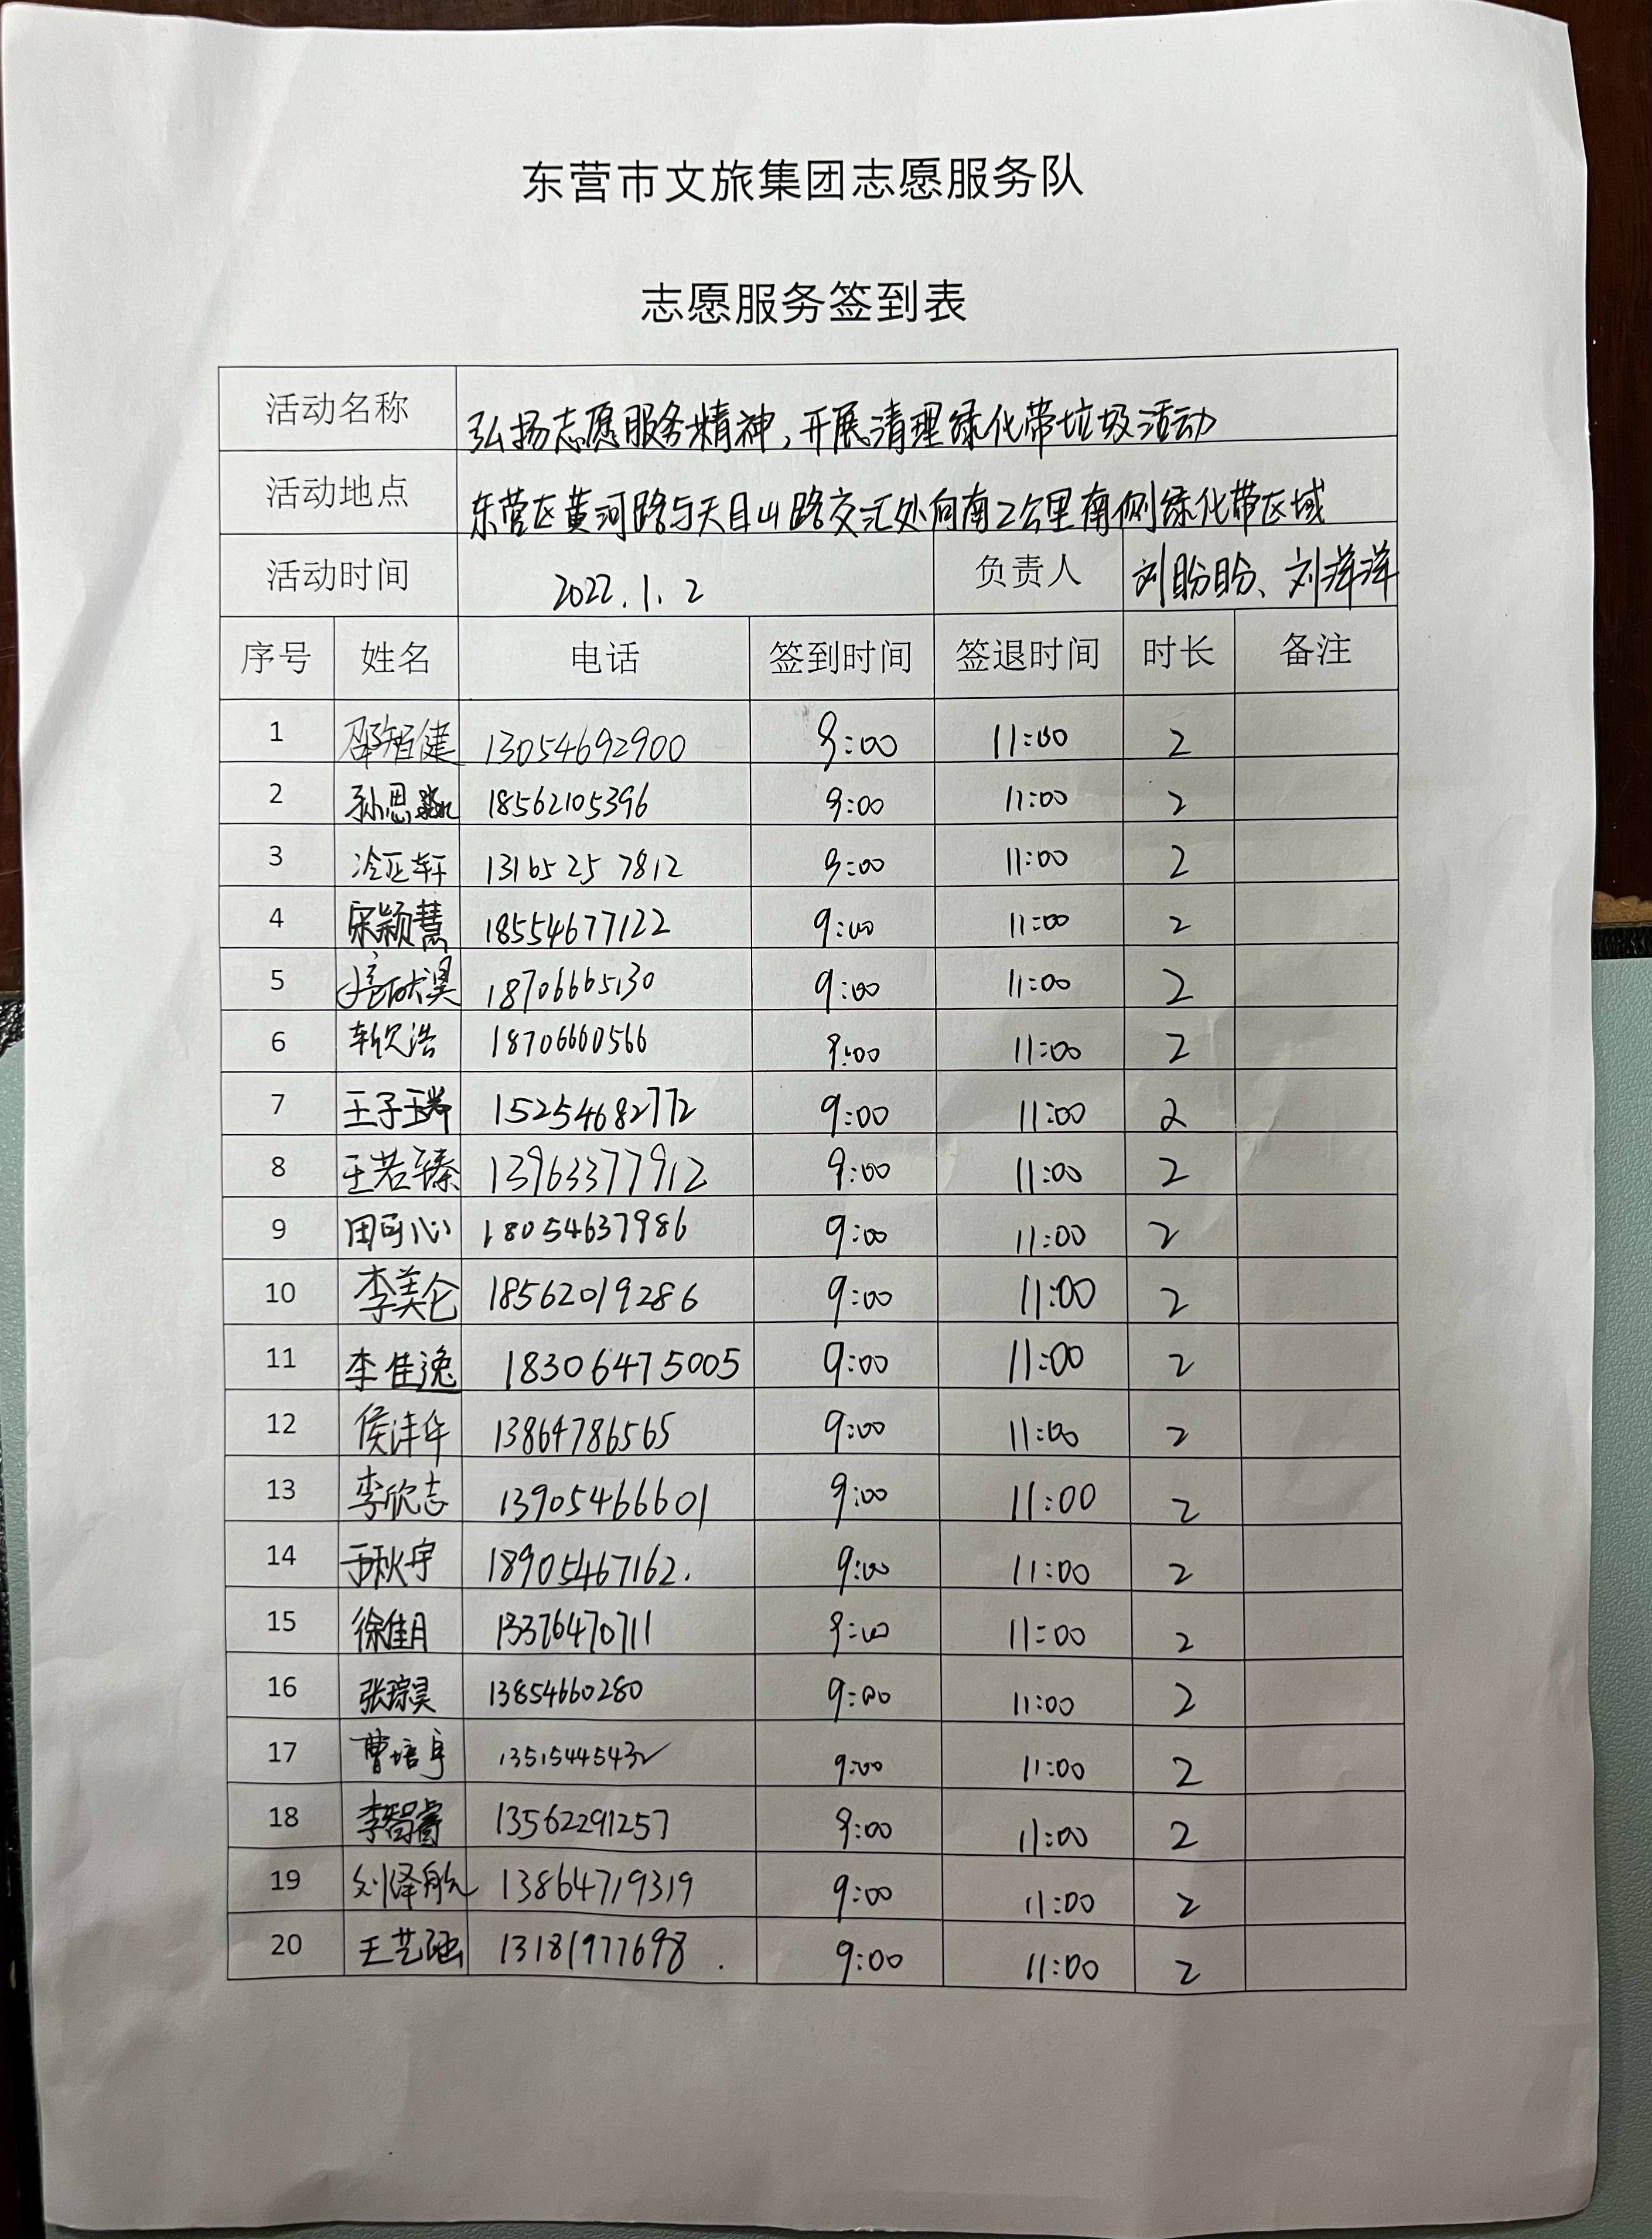 东营市文旅集团志愿服务队
志愿服务签到表
活动名称 弘扬志愿服务精神,开展清理绿化带垃圾活动
活动地点 东营区黄河路与天目山路交汇处向南2公里南侧绿化带区域
活动时间 2022.1.2 负责人 刘盼盼、刘洋洋
序号 姓名 电话 签到时间 签退时间 时长 备注
1 邵智健 13054692900 9:00 11:00 2
2 孙思 18562105396 9:00 11:00 2
3 冷正轩 13165257812 9:00 11:00 2
4 宋颖慧 18554677122 9:00 11:00 2
5 18706665130 9:00 11:00 2
6 18706660566 9:00 11:00 2
7 王子瑞 15254682772 9:00 11:00 2
8 王若臻 13963377912 9:00 11:00 2
9 田可心 18054637986 9:00 11:00 2
10 李美仑 18562019286 9:00 11:00 2
11 李佳逸 18306475005 9:00 11:00 2
12 侯沣华 13864786565 9:00 11:00 2
13 李欣志 13905466601 9:00 11:00 2
14 秋宇 18905467162. 9:00 11:00 2
15 徐佳月 13376470711 9:00 11:00 2
16 张琮昊 13854660280 9:00 11:00 2
17 曹培宇 13515445432 9:00 11:00 2
18 李智睿 13562291257 9:00 11:00 2
19 刘泽航 13864719319 9:00 11:00 2
20 王艺涵 13181977698. 9:00 11:00 2